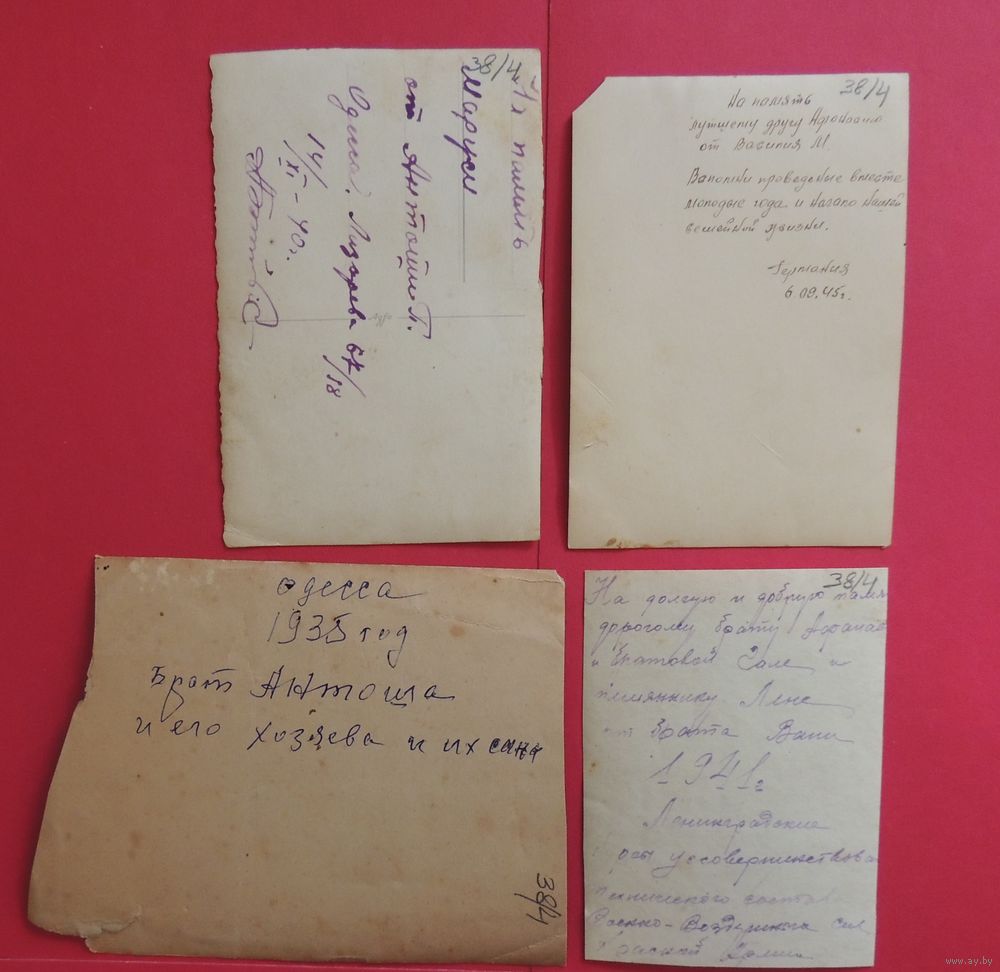 38/4
На память
Маруси
от Антоши П.
Одесса. Лазарева 67/18
14/XI-40г.
Agfa
38/4
На память
лутшему другу Афонасию
от Василия М.
Вапомни проведеные вместе
молодые года и начало нашей
семейной жизни.
Германия
6.09.45г.
Одесса
1935 год
Брат Антоша
и его хозяева и их сына
38/4
38/4
На долгую и добрую памя
дрогому брату Афанас
и Зале и
племяннику Лене
от брата Вани
1941г
Ленинградские
усовершинствова
технического состава
Военно-Воздушных сил
Красной Армии
www.ay.by